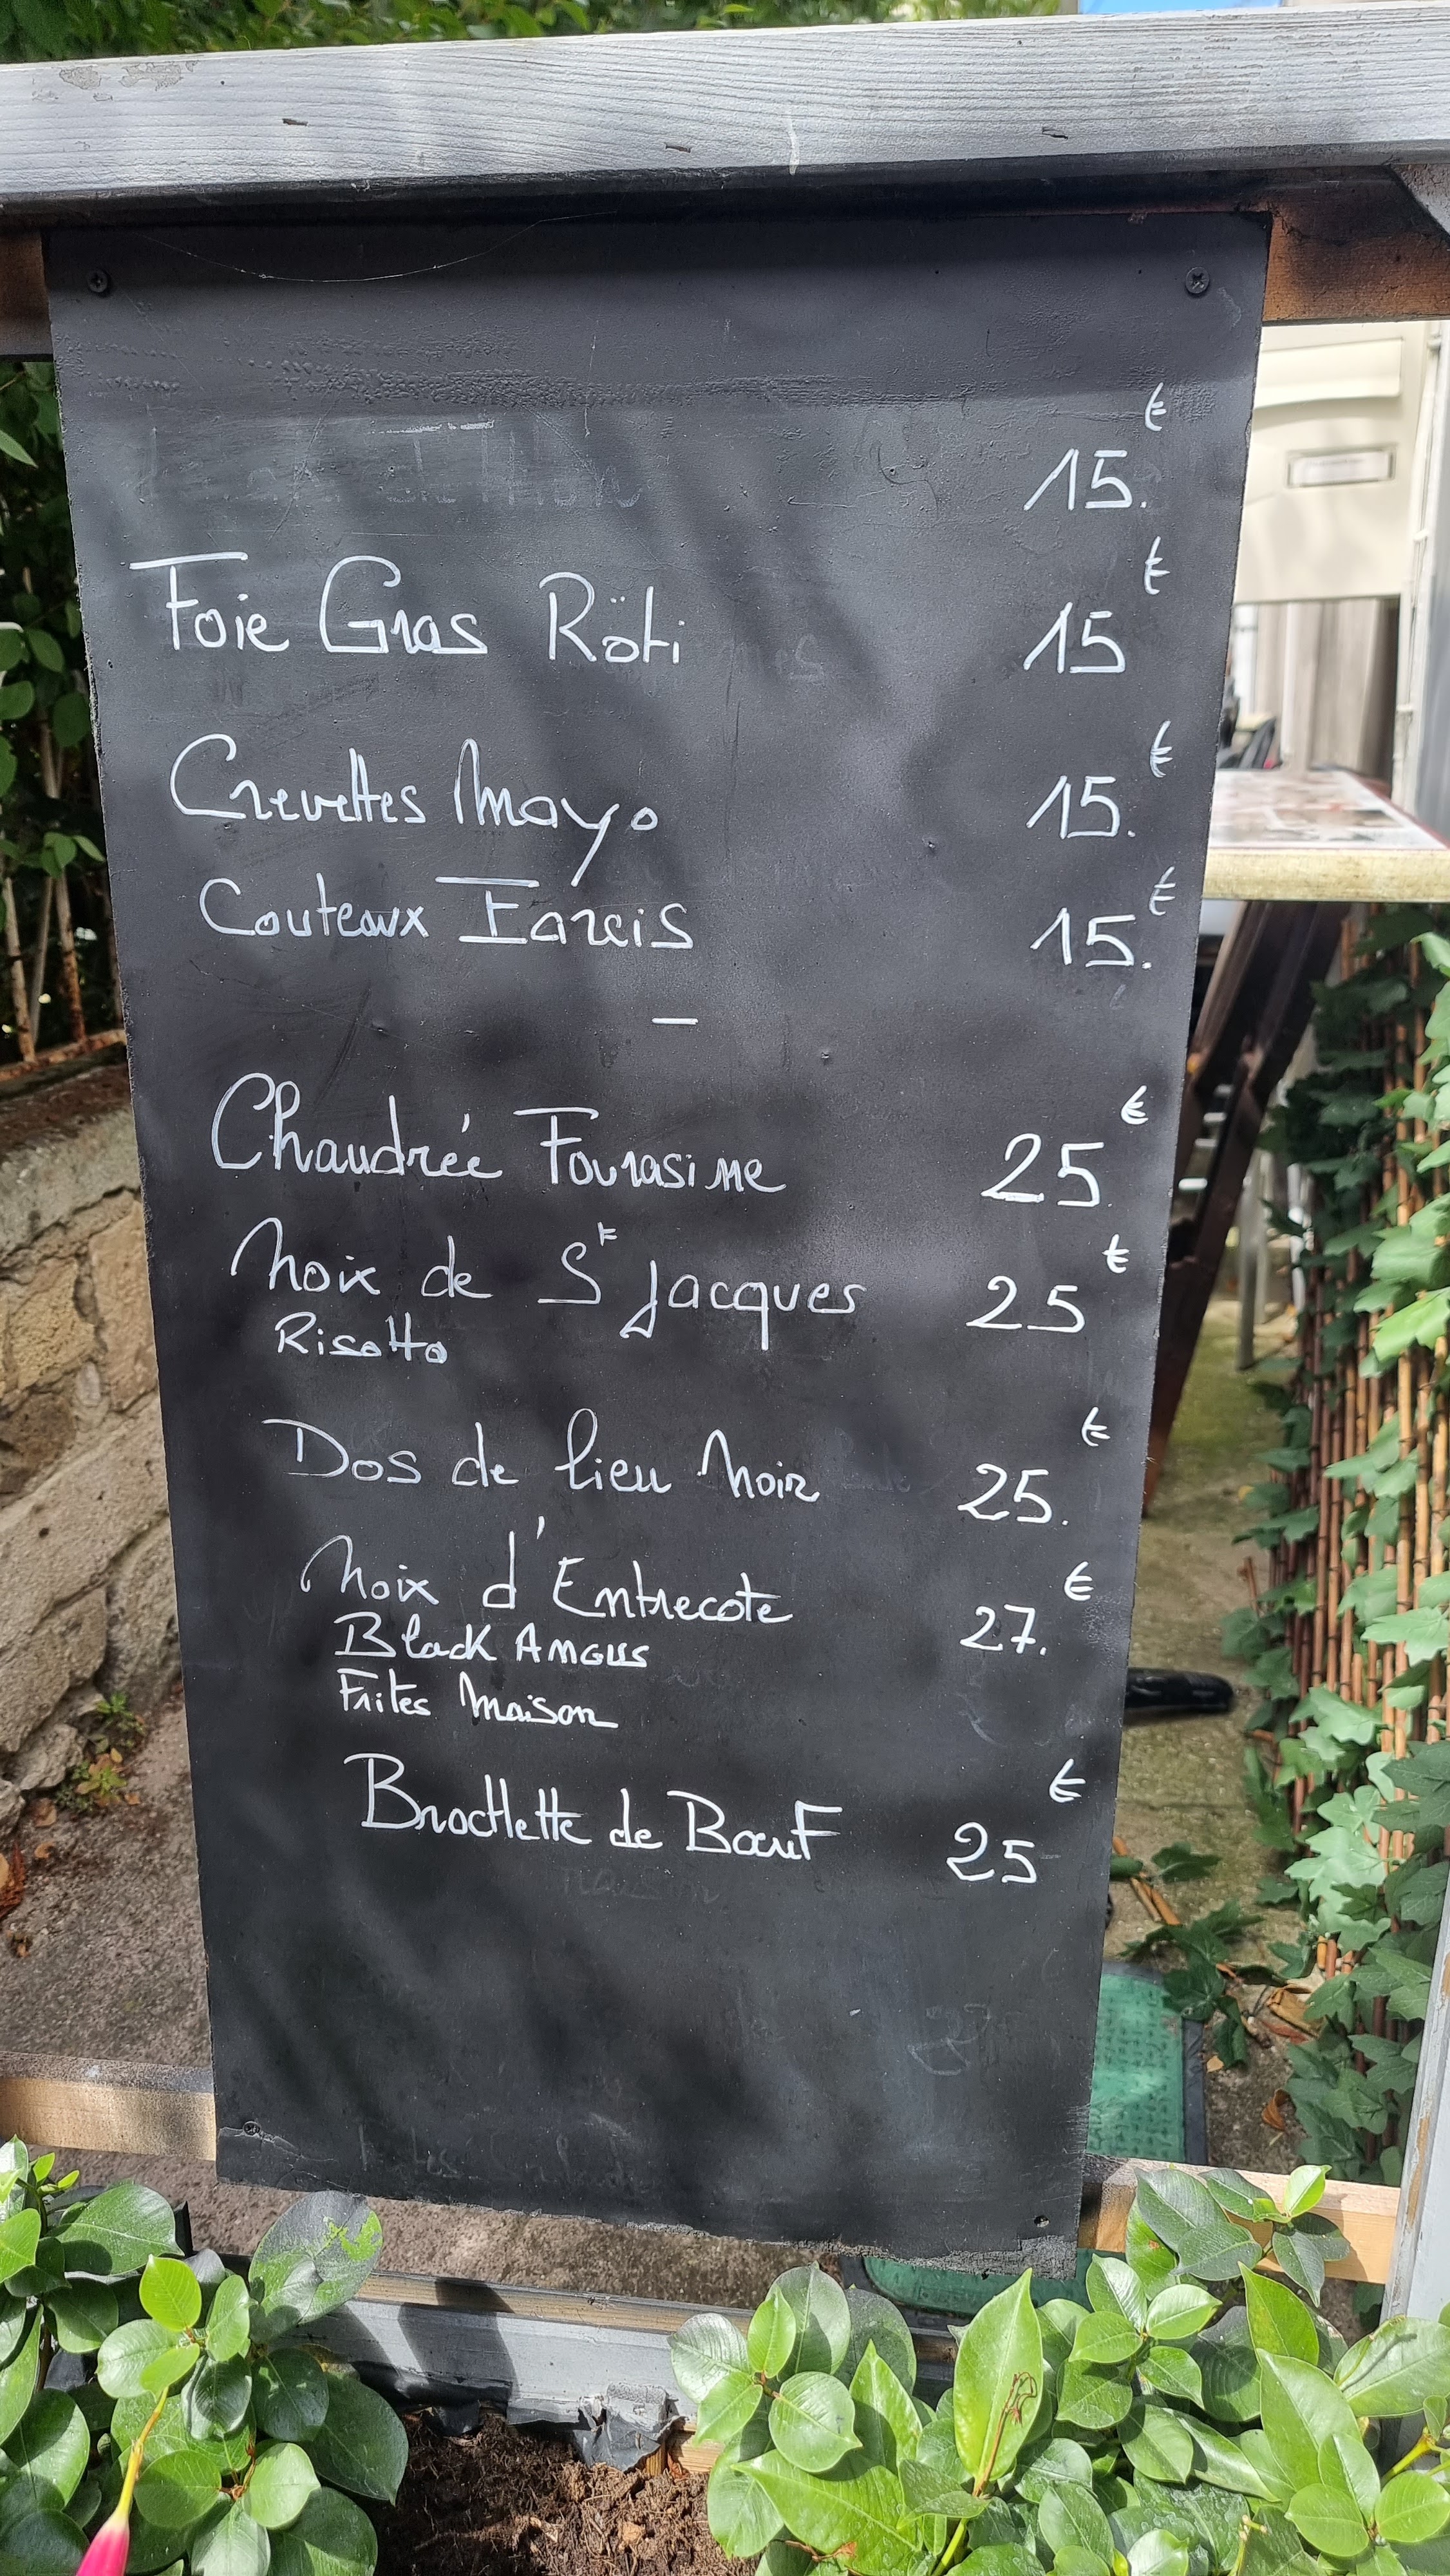 15.€
Foie Gras Röti 15€
Crevettes Mayo 15.€
Couteaux Farcis 15.€
—
Chaudrée Fourasine 25€
Noix de St Jacques 25€
Risotto
Dos de lieu Noir 25.€
Noix d'Entrecote 27.€
Black Angus
Frites Maison
Brochette de Bœuf 25€